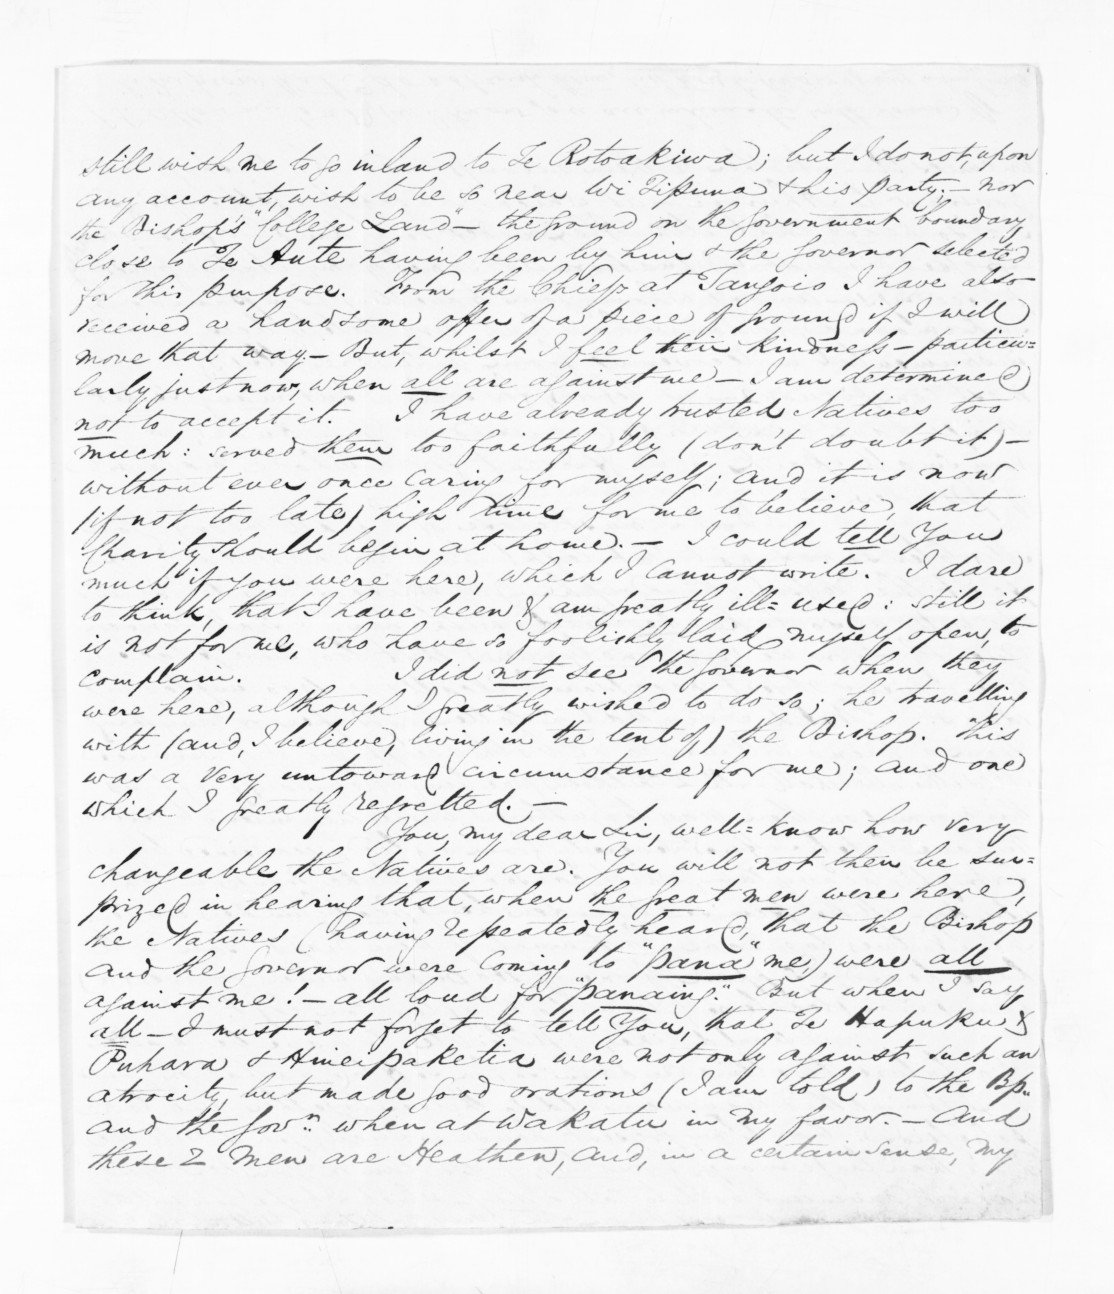 still wish me to go inland to Te Rotoakiwa; but I do not, upon
any account, wish to be so near Wi Tipuna & his party; – nor
the Bishop's "College Land" – the ground on the Government boundary
close to Te Aute having been by him & the Governor selected
for this purpose. From the Chiefs at Tangoio I have also
received a handsome offer of a piece of ground if I will
move that way. – But, whilst I feel their kindness – particu=
larly just now, when all are against me – I am determined
not to accept it. I have already trusted Natives too
much: served them too faithfully (don't doubt it) –
without ever once caring for myself; and it is now
(if not too late) high time for me to believe, that
Charity should begin at home. – I could tell You
much if you were here, which I cannot write. I dare
to think, that I have been & am greatly ill=used: still it
is not for me, who have so foolishly laid myself open, to
complain. I did not see the Governor when they
were here, although I greatly wished to do so; he travelling
with (and, I believe, living in the tent of) the Bishop. This
was a very untoward circumstance for me; and one
which I greatly regretted. –
You, my dear Sir, well=know how very
changeable the Natives are. You will not then be sur=
prized in hearing that, when the great men were here,
the Natives (having repeatedly heard, that the Bishop
and the Governor were coming to "pana" me,) were all
against me! – all loud for "panaing." But when I say,
all – I must not forget to tell You, that Te Hapuku &
Puhara & Hineipaketia were not only against such an
atrocity, but made good orations (I am told) to the Bp.
and the Govr. when at Wakatu in my favor. – And
these 2 men are Heathen, and, in a certain sense, my